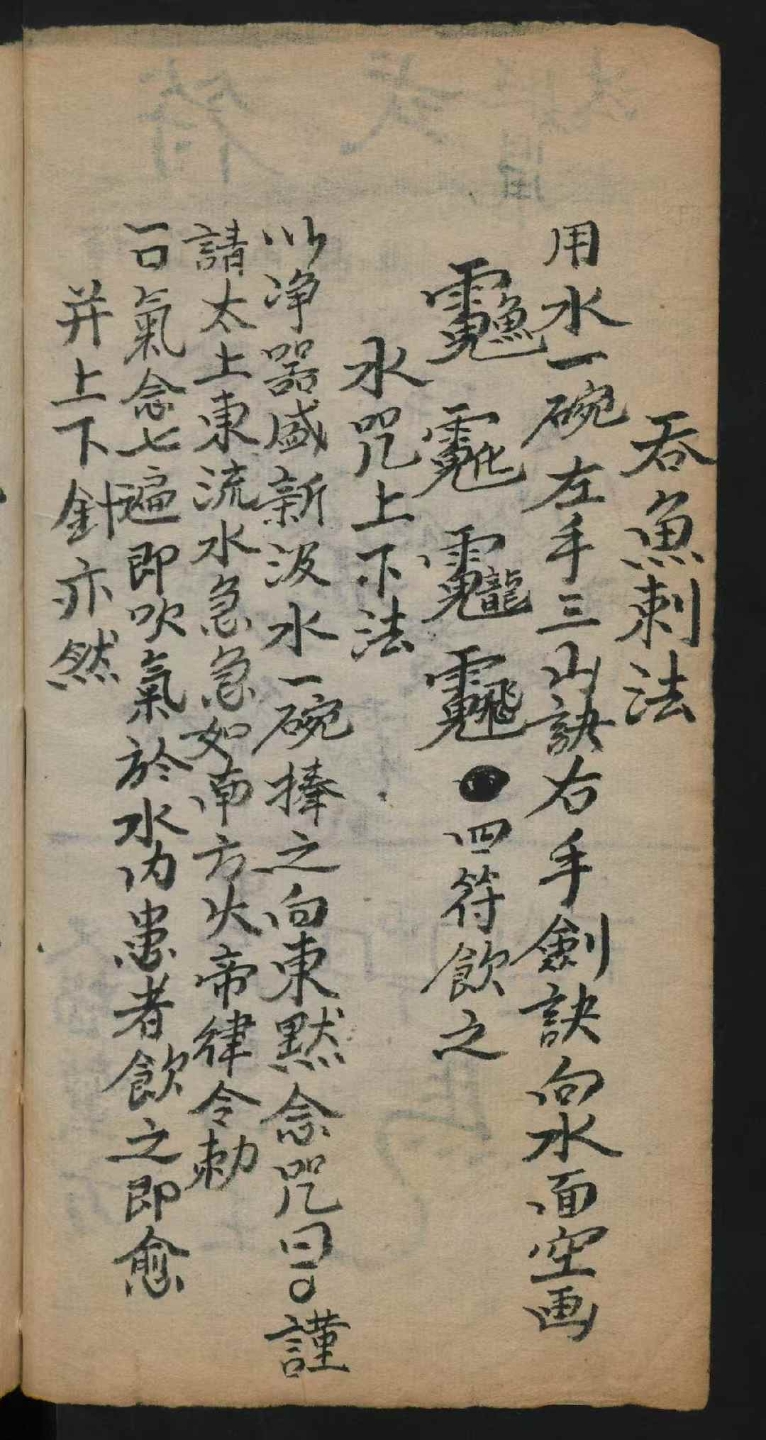 吞魚刺法
用水一碗左手三山訣右手劍訣向水面空画
四符飲之
水咒上下法
以净器盛新汲水一碗捧之向東默念咒曰謹
請太上東流水急急如南方火帝律令勅
一口氣念七遍即吹氣於水内患者飲之即愈
并上下針亦然